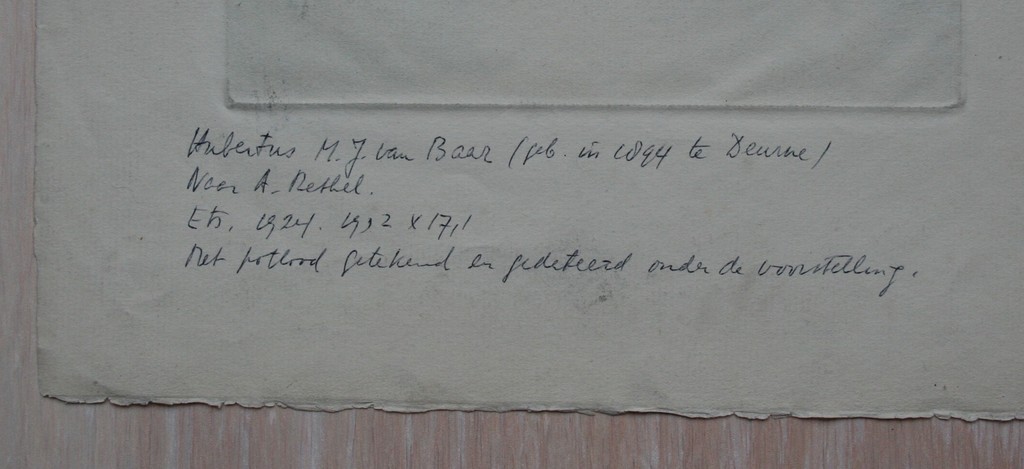 Hubertus M. J. van Baar (geb. in 1894 te Deurne)
Naar A. Rethel.
Ets, 1924. 19,2 x 17,1
Met potlood getekend en gedateerd onder de voorstelling.